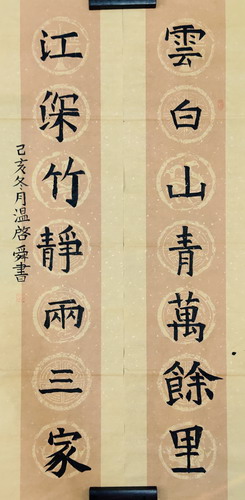 雲白山青萬餘里
江深竹靜兩三家
己亥冬月温啓舜書